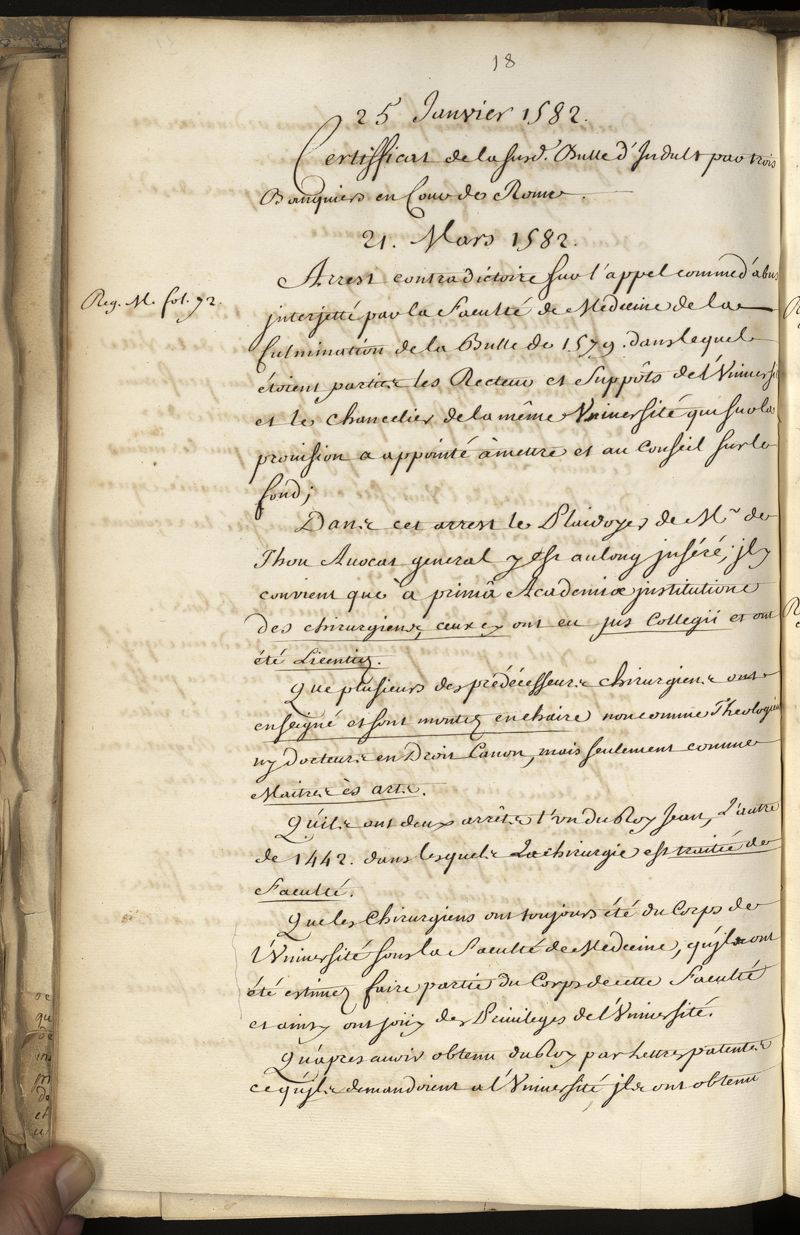 18
25 Janvier 1582.
Certifficat de la susd.e Bulle d'Indult par trois
Banquiers en Cour de Rome.
21. Mars 1582.
Reg. M. fol. 72.
Arrest contradictoire sur l'appel comme d'abus
interjetté par la Faculté de Medecine de la
fulmination de la Bulle de 1579. dans lequel
étoient parties les Recteur et Suppôts de l'Université
et le Chancelier de la même Université qui sur la
provision a appointé à mettre et au Conseil sur le
fond;
Dans cet arrest le Plaidoyer de Mr. de
Thou Avocat general y est au long inséré; il y
convient que a primâ Academiæ institutione
des chirurgiens, ceux cy ont eu jus Collegii et ont
été Licentiez.
Que plusieurs des prédécesseurs chirurgiens ont
enseigné et sont montez en chaire non comme Theologiens
ny docteurs en Droit Canon, mais seulement comme
Maitres ès arts.
Qu'ils ont deux arrêts l'un du Roy Jean, L'autre
de 1442. dans lesquels La chirurgie est traitée de
Faculté.
Que les Chirurgiens ont toujours été du Corps de
l'Université sous la Faculté de Medecine, qu'ils ont
été estimez faire partie du Corps de cette Faculté
et ainsy ont joüy des Privileges de l'Université.
Qu'après avoir obtenu du Roy par Lettres patentes
ce qu'ils demandoient a l'Université, ils ont obtenu